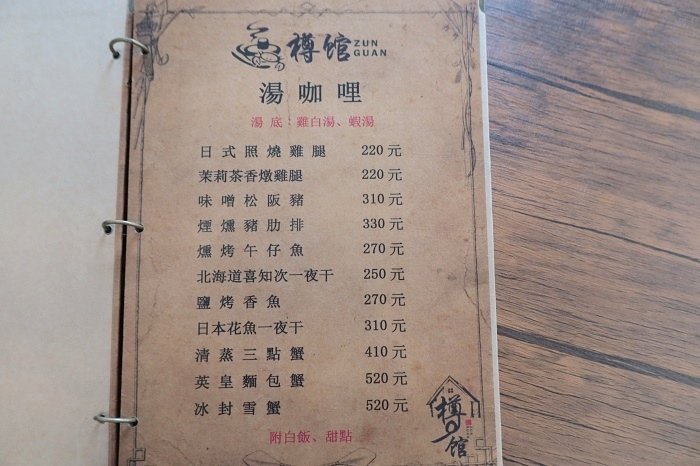 樽館 ZUN GUAN
湯咖哩
湯底:雞白湯、蝦湯
日式照燒雞腿 220元
茉莉茶香燉雞腿 220元
味噌松阪豬 310元
煙燻豬肋排 330元
燻烤午仔魚 270元
北海道喜知次一夜干 250元
鹽烤香魚 270元
日本花魚一夜干 310元
清蒸三點蟹 410元
英皇麵包蟹 520元
冰封雪蟹 520元
附白飯、甜點
樽館